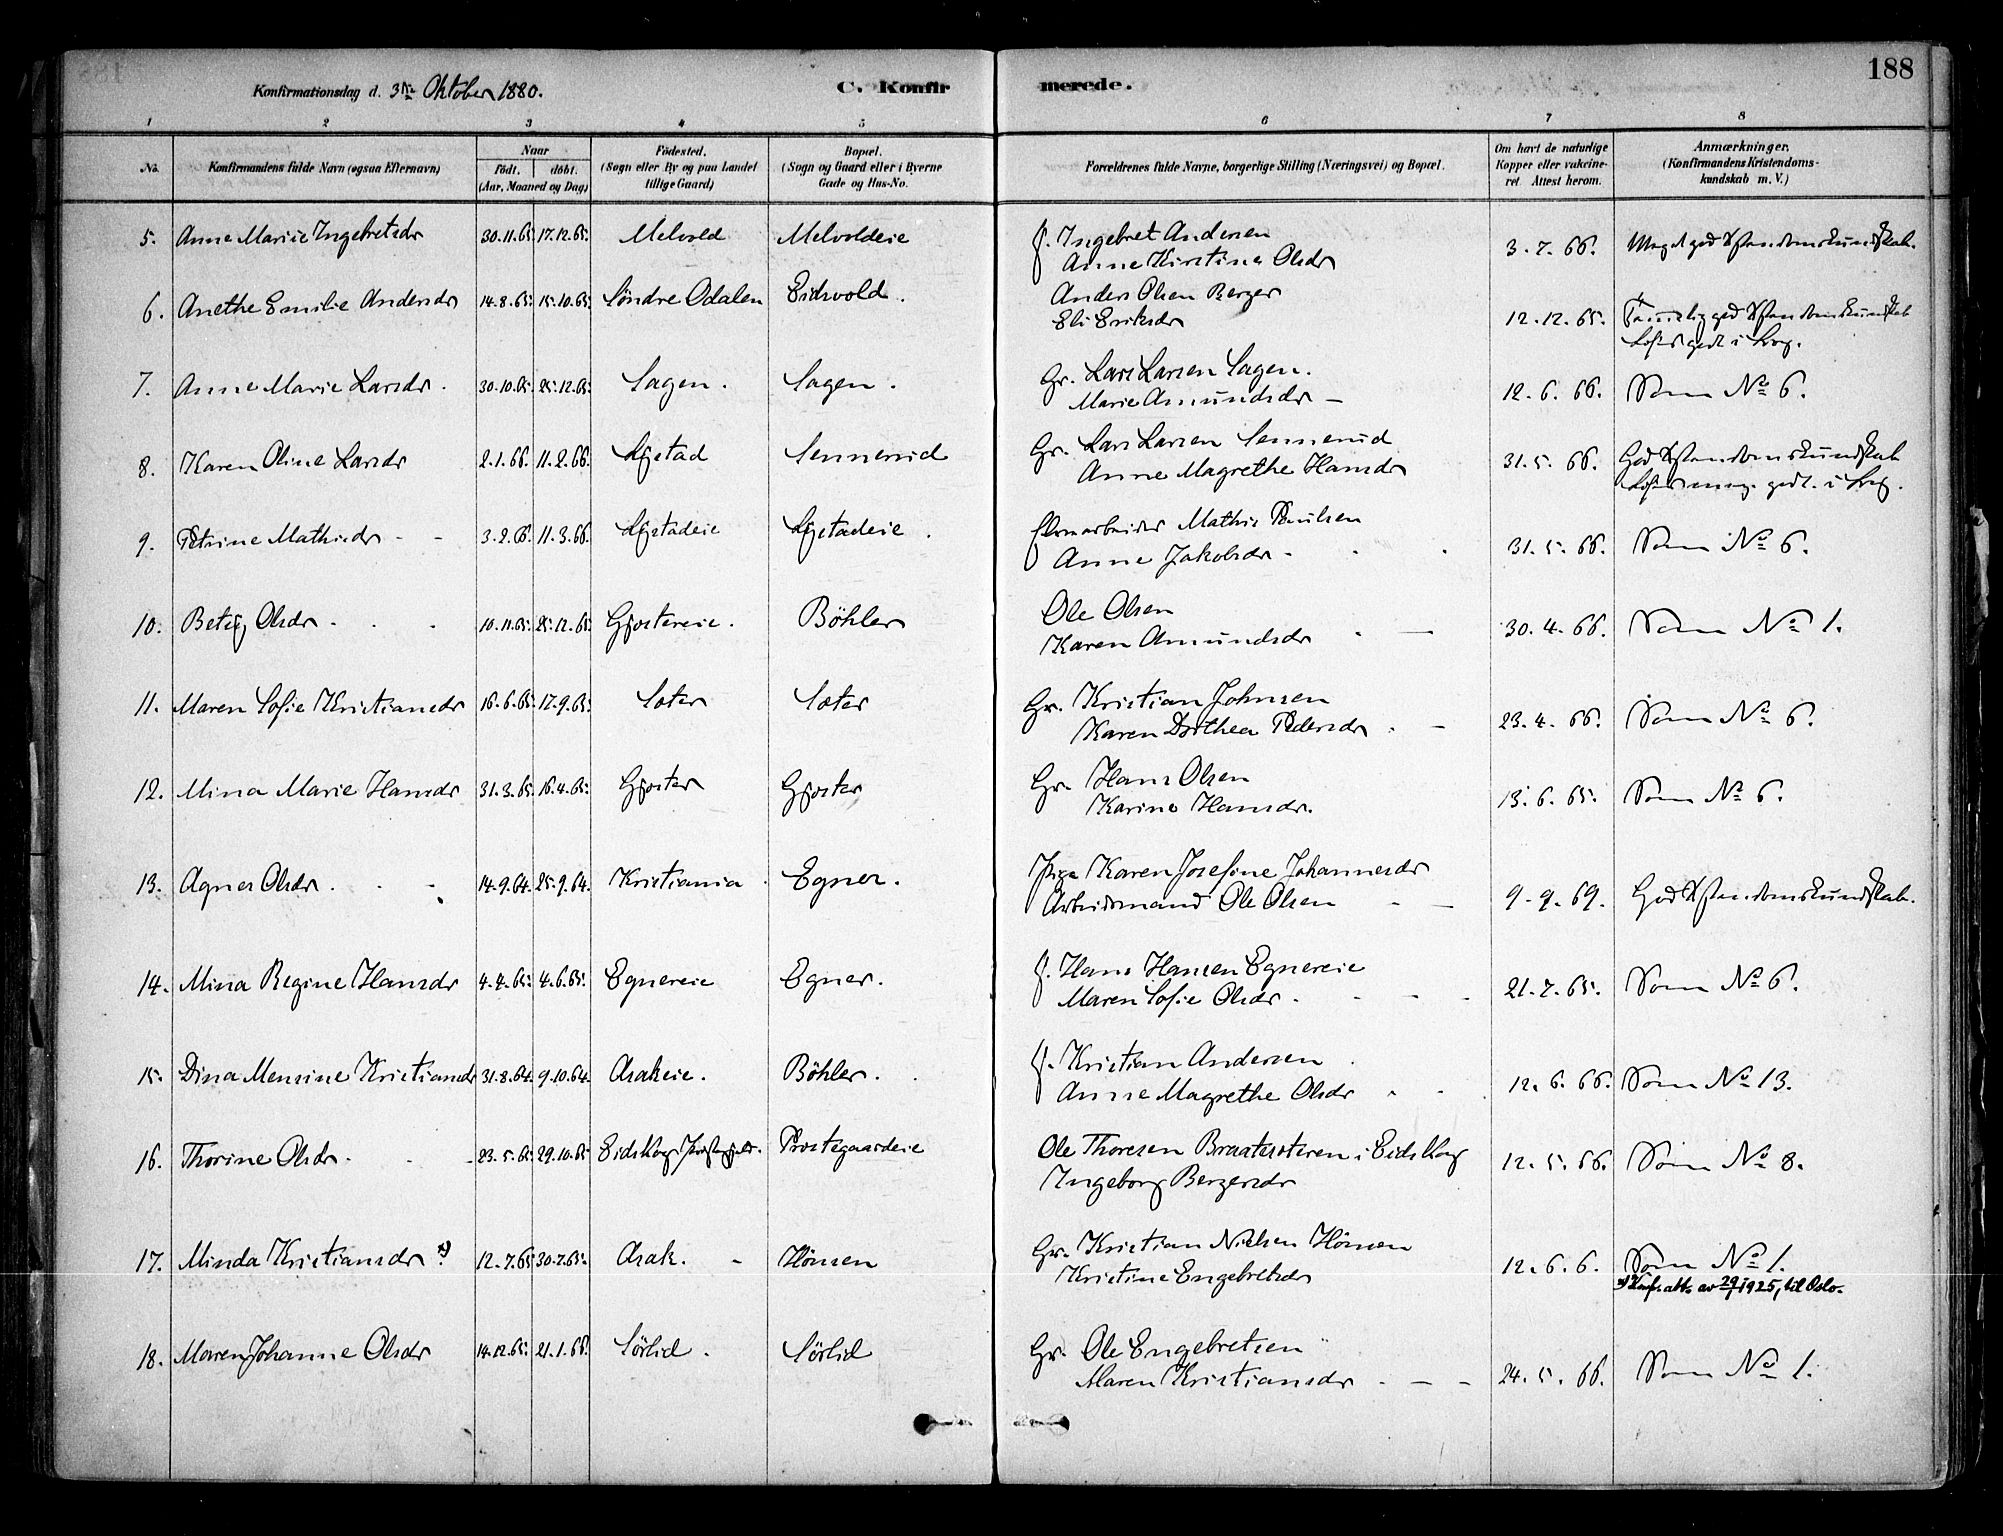 188
Konfirmationsdag d. 3die Oktober 1880.
C. Konfirmerede.
1 2 3 4 5 6 7 8
No. Konfirmandens fulde Navn (ogsaa Efternavn) Naar Födt. döbt. (Aar, Maaned og Dag) Födested. (Sogn eller By og paa Landet tillige Gaard) Bopæl. (Sogn og Gaard eller i Byerne Gade og Hus-No. Forældrenes fulde Navne, borgerlige Stilling (Næringsvei) og Bopæl. Om havt de naturlige Kopper eller vakcineret Attest herom. Anmærkninger. (Konfirmandens Kristendomskundskab m. V.)
5. Anne Marie Ingebretsdr 30.11.65. 17.12.65. Melvold Melvoldeie f. Ingebret Andersen 3.7.66. Meget god Xstendomskundskab.
Anne Kirstine Olsdr
6. Anethe Emilie Andersdr 14.8.65. 15.10.65. Söndre Odalen Eidsvold. Anders Olsen Berger 12.12.65. Temmelig god Xstendomskundskab
Eli Eriksdr
7. Anne Marie Larsdr. 30.10.65. 25.12.65. Sagen. Sagen. Gr. Lars Larsen Sagen. 12.6.66. Som No 6.
Marie Amundsdr —
8. Karen Oline Larsdr 2.1.66. 11.2.66. Ljøstad Sennerud Gr. Lars Larsen Sennerud 31.5.66. God Xstendomskundskab
Anne Magrethe Hansdr
9. Petrine Mathisdr - - 3.2.66. 11.3.66. Ljøstadeie Ljøstadeie. Mathis Poulsen 31.5.66. Som No 6.
Anne Jakobsdr -
10. Betsy Olsdr 10.11.65. 25.12.65. Gjøstereie. Böhler Ole Olsen 30.4.66. Som No 1.
Karen Amundsdr —
11. Maren Sofie Kristiansdr 16.6.65. 17.9.65. Sæter Sæter Gr. Kristian Johnsen 23.4.66. Som No 6.
Karen Dorthea Pedersdr —
12. Mina Marie Hansdr 31.3.65. 16.4.65. Gjøster Gjøster Gr. Hans Olsen 13.6.65. Som No 6.
Karine Hansdr.
13. Agnes Olsdr. 14.9.64. 25.9.64. Kristiania Egner. Pige Karen Josefine Johannesdr 9-9.69. God Xstendomskundskab.
Arbeidsmand Ole Olsen - —
14. Mina Regine Hansdr 4.4.65. 4.6.65. Egnereie Egner. f. Hans Hansen Egnereie 21.7.65. Som No 6.
Maren Sofie Olsdr.
15. Dina Mensine Kristiansdr 31.8.64. 9.10.64. Asakeie. Böhler. f. Kristian Andersen 12.6.66. Som No 13.
Anne Magrethe Olsdr
16. Thorine Olsdr. 23.5.65. 29.10.65. Eidskog Prestegjeld. Prestegaardeie Ole Thoresen Braatesæteren i Eidskog 12.5.66. Som No 8.
Ingeborg Bergersdr
17. Minda Kristiansdr x) 12.7.65 30.7.65. Asak. - Hönsen Gr. Kristian Nielsen Hönsen 12.6.6. Som No 1.
Kristine Engebretsdr x) Konf. att. av 29/1 1925, til Oslo.
18. Maren Johanne Olsdr 14.12.65. 21.1.66. Sörlid. Sörlid Gr. Ole Engebretsen 24.5.66. Som No 1.
Maren Kristiansdr. — —